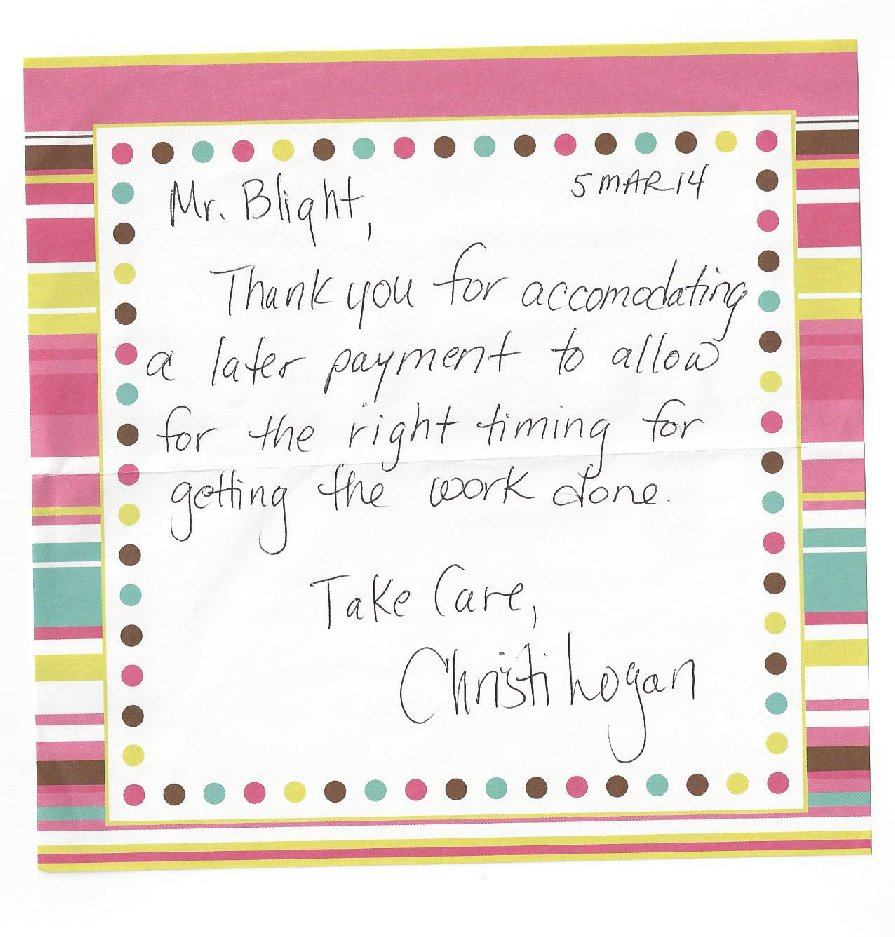 5 MAR 14
Mr. Blight,
Thank you for accomodating
a later payment to allow
for the right timing for
getting the work done.
Take Care,
Christi Logan